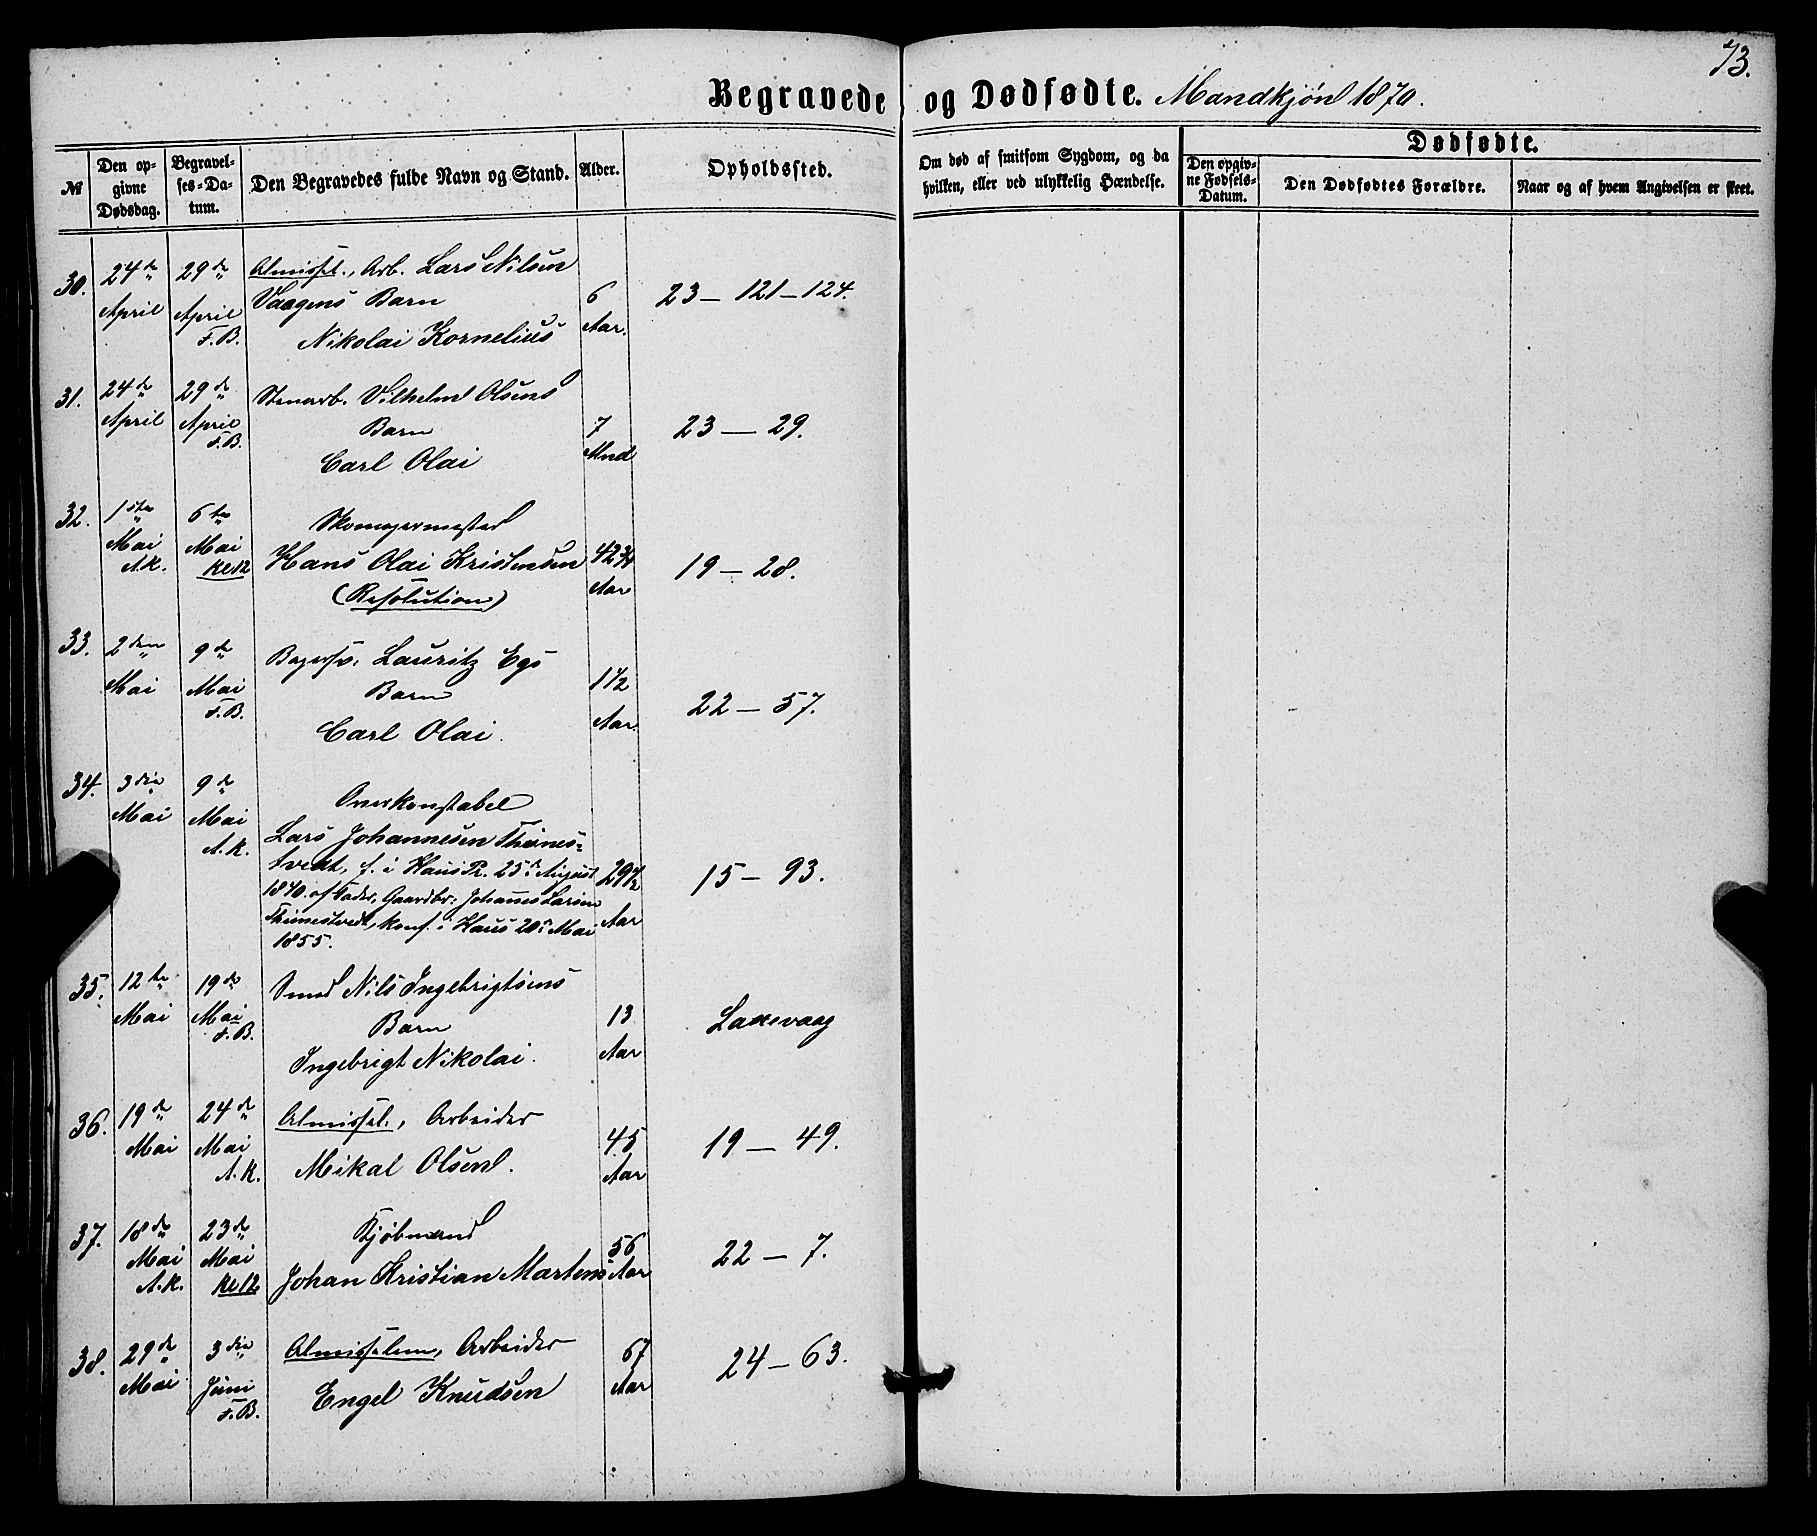 73.
Begravede og Dødfødte. Mandkjøn 1870.
№
Den opgivne Dødsdag.
Begravelses-Datum.
Den Begravedes fulde Navn og Stand.
Alder.
Opholdssted.
Om død af smitsom Sygdom, og da hvilken, eller ved ulykkelig Hændelse.
Dødfødte.
Den opgivne Fødsels-Datum.
Den Dødfødtes Forældre.
Naar og af hvem Angivelsen er skeet.
30. 24de April 29de April F.B. Almissel., Arb. Lars Nilsen
Vaagens Barn 6 Aar. 23 — 121 — 124.
Nikolai Kornelius
31. 24de April 29de April F.B. Stenarb. Vilhelm Olsens
Barn 7 Mnd 23 — 29.
Carl Olai
32. 1ste Mai A.K. 6te Mai Kl 12 Skomagermester
Hans Olai Kristensen 42 3/4 Aar 19 — 28.
(Resolution)
33. 2den Mai 9de Mai F.B. Bagersv. Lauritz Egs
Barn 1 1/2 Aar. 22 — 57.
Carl Olai.
34. 3die Mai 9de Mai A.K. Overkonstabel
Lars Johannesen Thunes=
tvedt, f. i Haus Pr. 25de August 29 1/2 Aar 15 — 93.
1840. af Fader, Gaardbr: Johannes Larsen
Thunestvedt, konf. i Haus 20de Mai
1855.
35. 12te Mai 19de Mai F.B. Smed Nils Ingebrigtsens
Barn 13 Aar Laxevaag
Ingebrigt Nikolai.
36. 19de Mai 24de Mai A.K. Almissel., Arbeider
Mikal Olsen. 45 Aar 19 — 49.
37. 18de Mai A.K. 23de Mai Kl 12 Kjøbmand
Johan Kristian Martens 56 Aar 22 — 7.
38. 29de Mai 3die Juni F.B. Almisselem, Arbeider
Engel Knudsen 67 Aar 24 — 63.